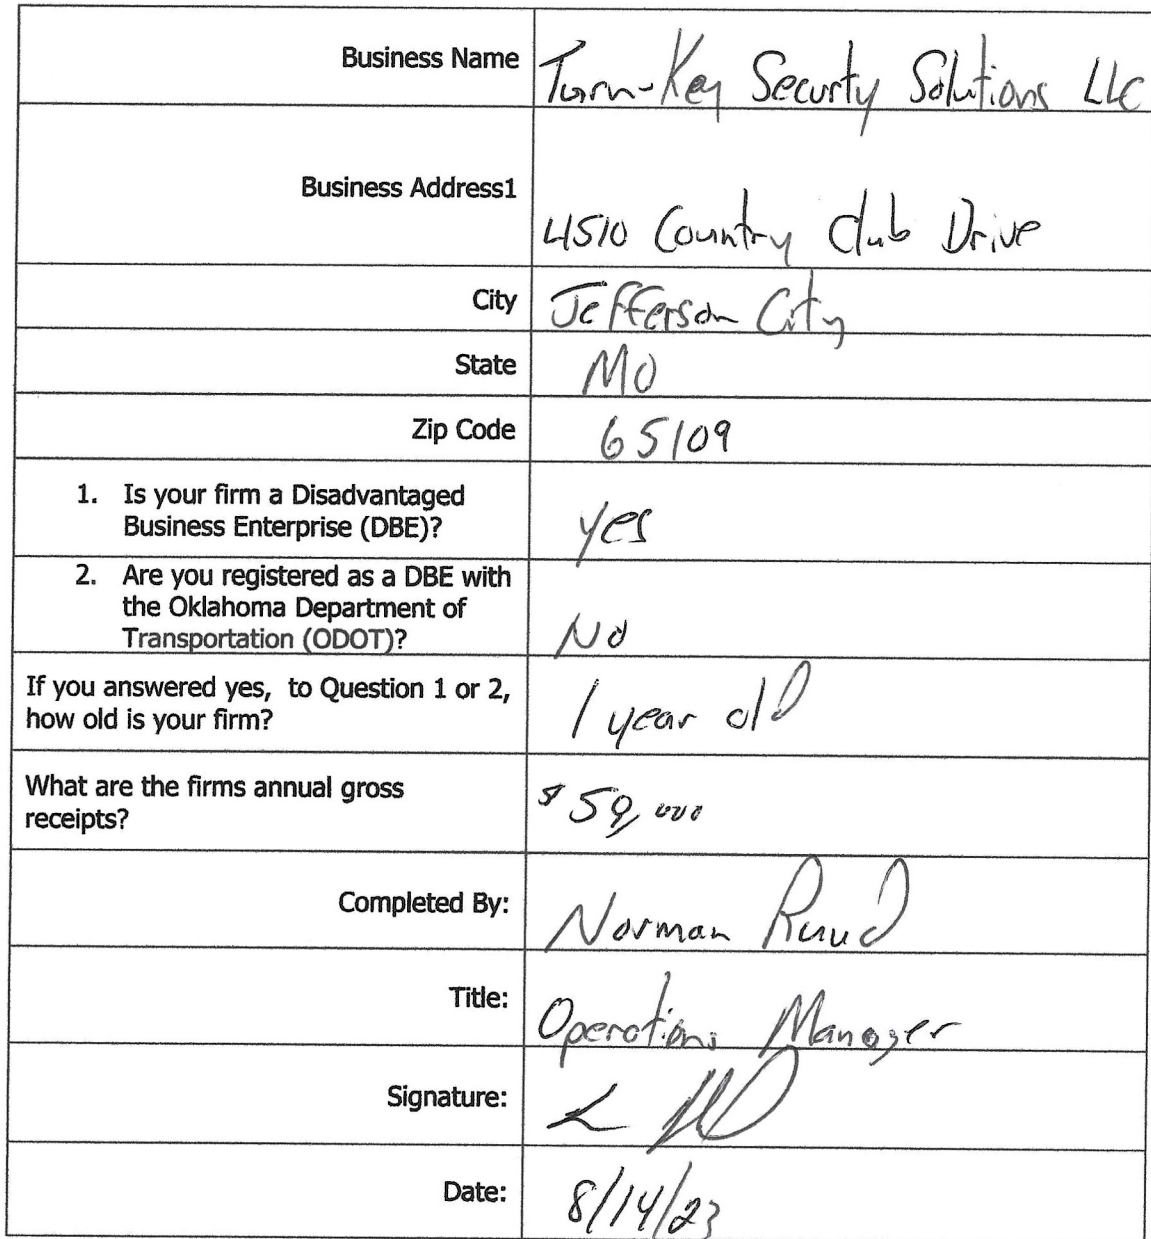 Business Name Turn-Key Securty Solutions LLC
Business Address1 4510 Country Club Drive
City Jefferson City
State MO
Zip Code 65109
1. Is your firm a Disadvantaged
Business Enterprise (DBE)? yes
2. Are you registered as a DBE with
the Oklahoma Department of
Transportation (ODOT)? No
If you answered yes, to Question 1 or 2,
how old is your firm? 1 year old
What are the firms annual gross
receipts? $59,000
Completed By: Norman Ruud
Title: Operations Manager
Signature:
Date: 8/14/23